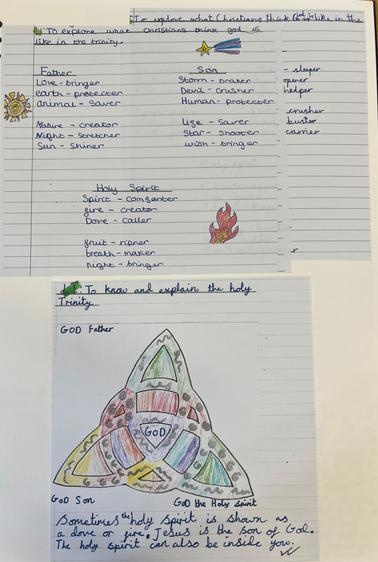 To explore what Christians think God is like in the
To explore what christians think god is
like in the trinity.
Father
Love-bringer
earth-protecter
animal-saver
Nature-creator
Night-stretcher
Sun-shiner
Son
Storm-braker
Devil-crusher
Human-protecter
Lige-saver
Star-shooter
wish-bringer
-sleeper
opener
helper
crusher
buster
carrier
Holy Spirit
Spirit-comforter
fire-creator
Dove-caller
fruit-ripner
breath-maker
night-bringer
To know and explain the holy
Trinity
GOD Father
GOD
GOD Son
God the Holy spirit
Sometimes the holy spirit is shown as
a dove or fire. Jesus is the son of God.
The holy spirit can also be inside you.